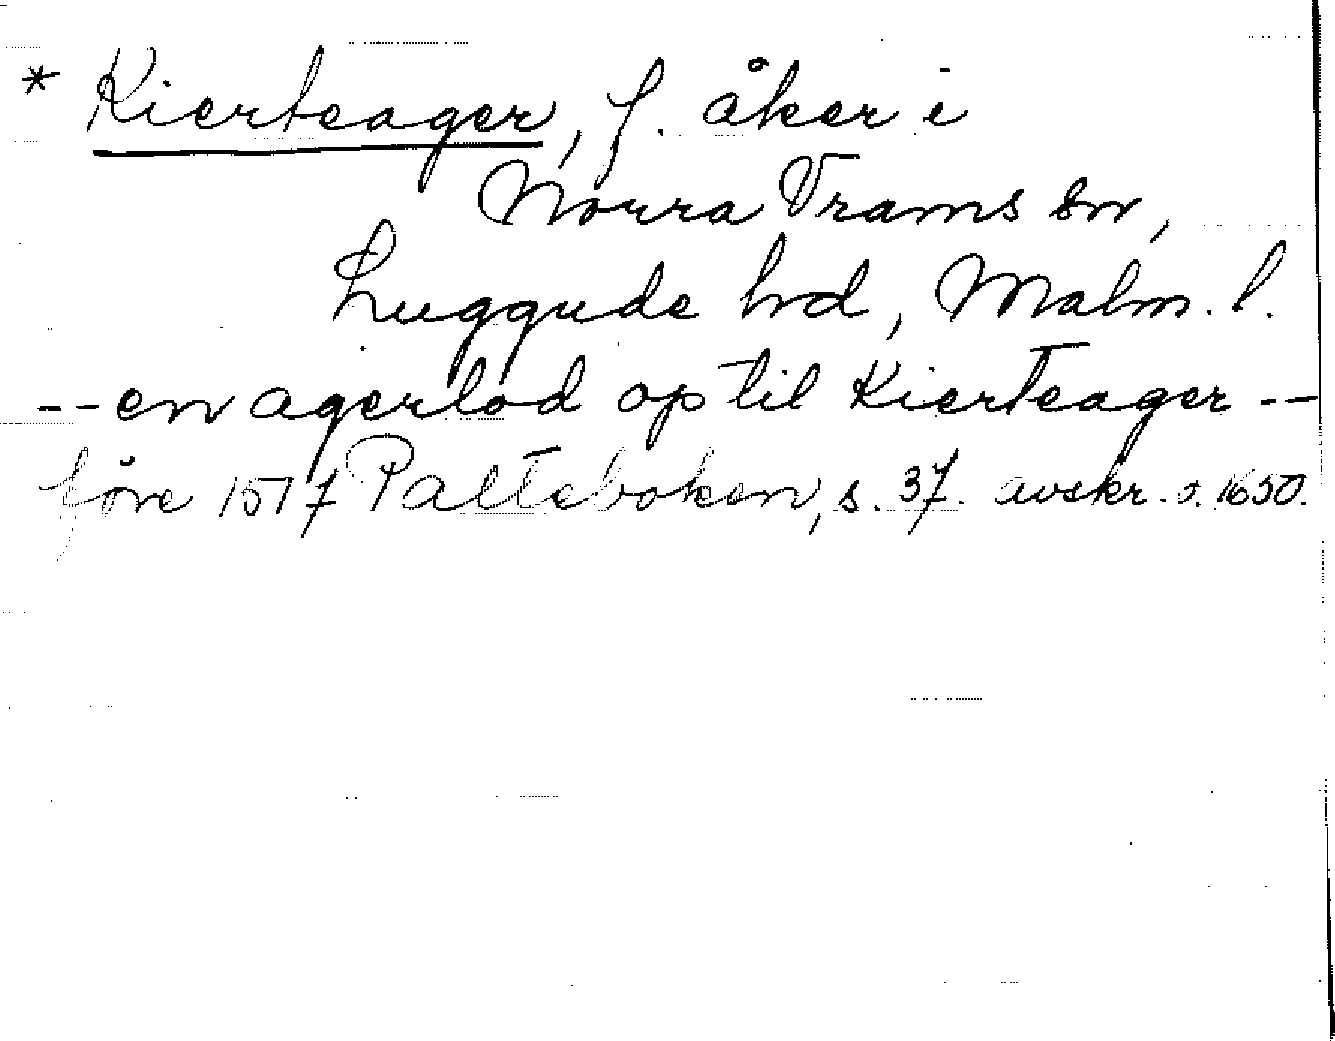 * Kierteager, f. åker i
Norra Vrams sn,
Luggude hrd, Malm. l.
-- en agerlod op til Kierteager --
före 1517 Palteboken, s. 37. avskr. o. 1650.